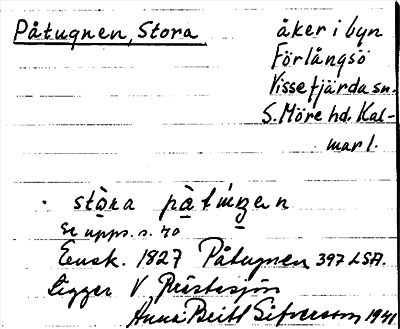 Påtugnen, Stora
åker i byn
Förlångsö
Vissefjärda sn.
S. Möre hd. Kal-
mar l.
stὰra pὰtıŋən
Se upps. s. 70
Ensk. 1827 Påtugnen 397 LSA.
Ligger V Prästesjön
Anna-Britt Sifversson 1941